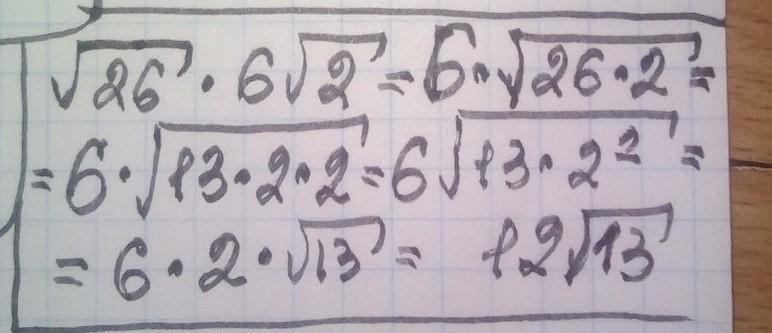 √26 · 6√2 = 6·√26·2 =
= 6·√13·2·2 = 6√13·2² =
= 6·2·√13 = 12√13